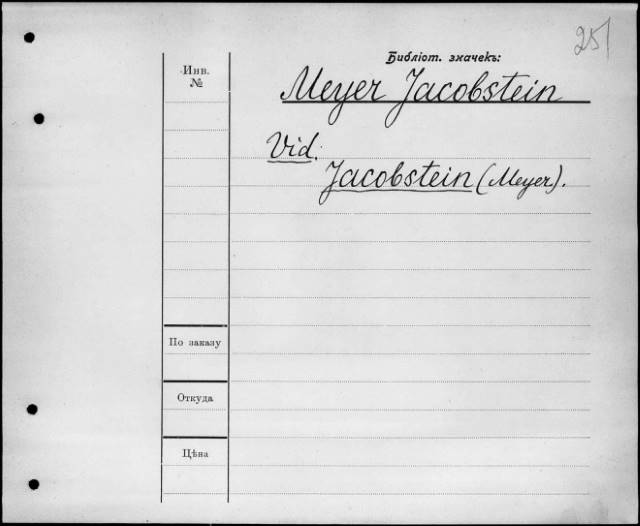 251
Библіот. значекъ:
Инв.
№
Meyer Jacobstein
Vid.
Jacobstein (Meyer).
По заказу
Откуда
Цѣна